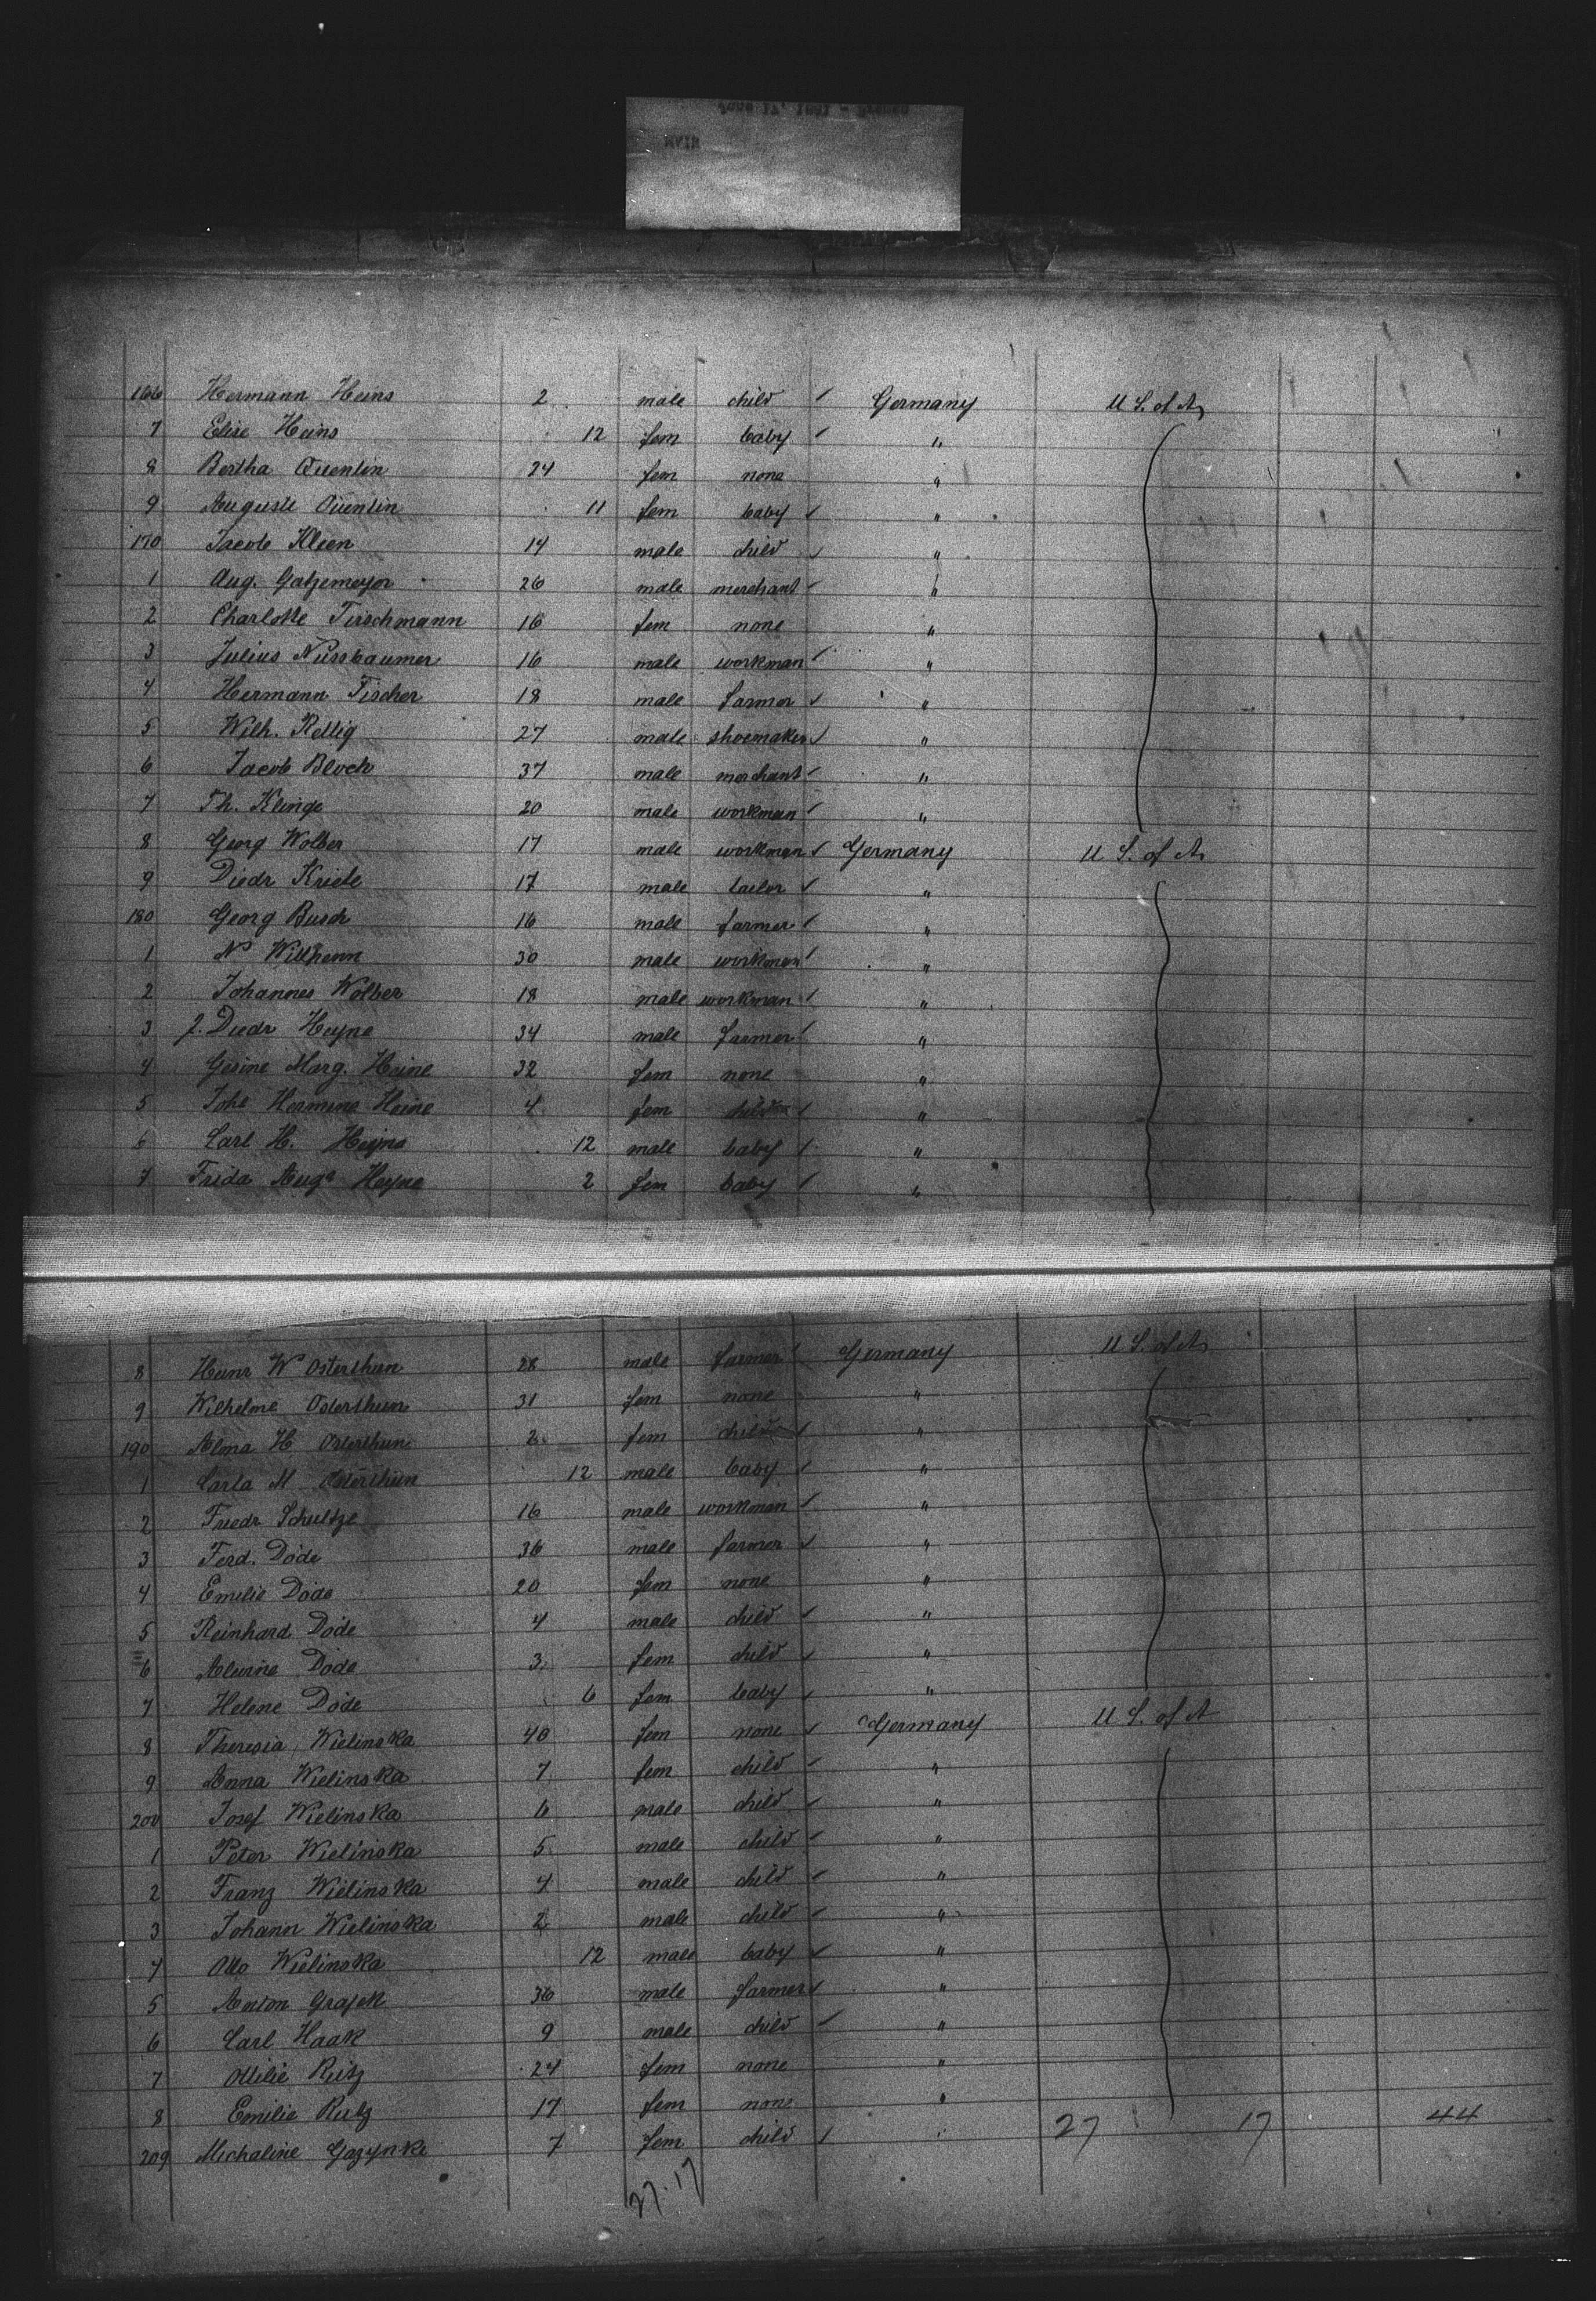 166 Hermann Heins 2 male child Germany U S. of A,
7 Elise Heins 12 fem baby "
8 Bertha Quentin 24 fem none "
9 Auguste Quentin 11 fem baby "
170 Jacob Kleen 14 male child "
1 Aug. Gatzemeyer 26 male merchant "
2 Charlotte Tirschmann 16 fem none "
3 Julius Nussbaumer 16 male workman "
4 Hermann Fischer 18 male farmer "
5 Wilh. Rettig 27 male shoemaker "
6 Jacob Bloch 37 male merchant "
7 Th. Klinge 20 male workman "
8 Georg Wolber 17 male workman Germany U. S. of A.
9 Diedr Kriete 17 male tailor "
180 Georg Busch 16 male farmer "
1 30 male workman "
2 Johannes Wolber 18 male workman "
3 J. Diedr Heyne 34 male farmer "
4 Gesine Marg. Heine 32 fem none "
5 Johe Hermine Heine 4 fem "
6 Carl H. Heyne 12 male baby "
7 Frida Auge Heyne 2 fem baby "
8 Heinr W Osterthun 28 male farmer Germany U S. of A
9 Wilhelme Osterthun 31 fem none "
190 Alma H Osterthun 2 fem child "
1 Carla M Osterthun 12 male baby "
2 Friedr Schultze 16 male workman "
3 Ferd. Döde 36 male farmer "
4 Emilie Döde 20 fem none "
5 Reinhard Döde 4 male child "
6 Alwine Döde 3 fem child "
7 Helene Döde 6 fem baby "
8 Theresia Wielinska 40 fem none Germany U S. of A
9 Anna Wielinska 7 fem child "
200 Josef Wielinska 6 male child "
1 Peter Wielinska 5 male child "
2 Franz Wielinska 4 male child "
3 Johann Wielinska 2 male child "
4 Otto Wielinska 12 male baby "
5 Anton Grajek 36 male farmer "
6 Carl Haak 9 male child "
7 Ottilie Rutz 24 fem none "
8 Emilie Rutz 17 fem none "
209 Michaline Gazynke 7 fem child " 27 17 44
27.17